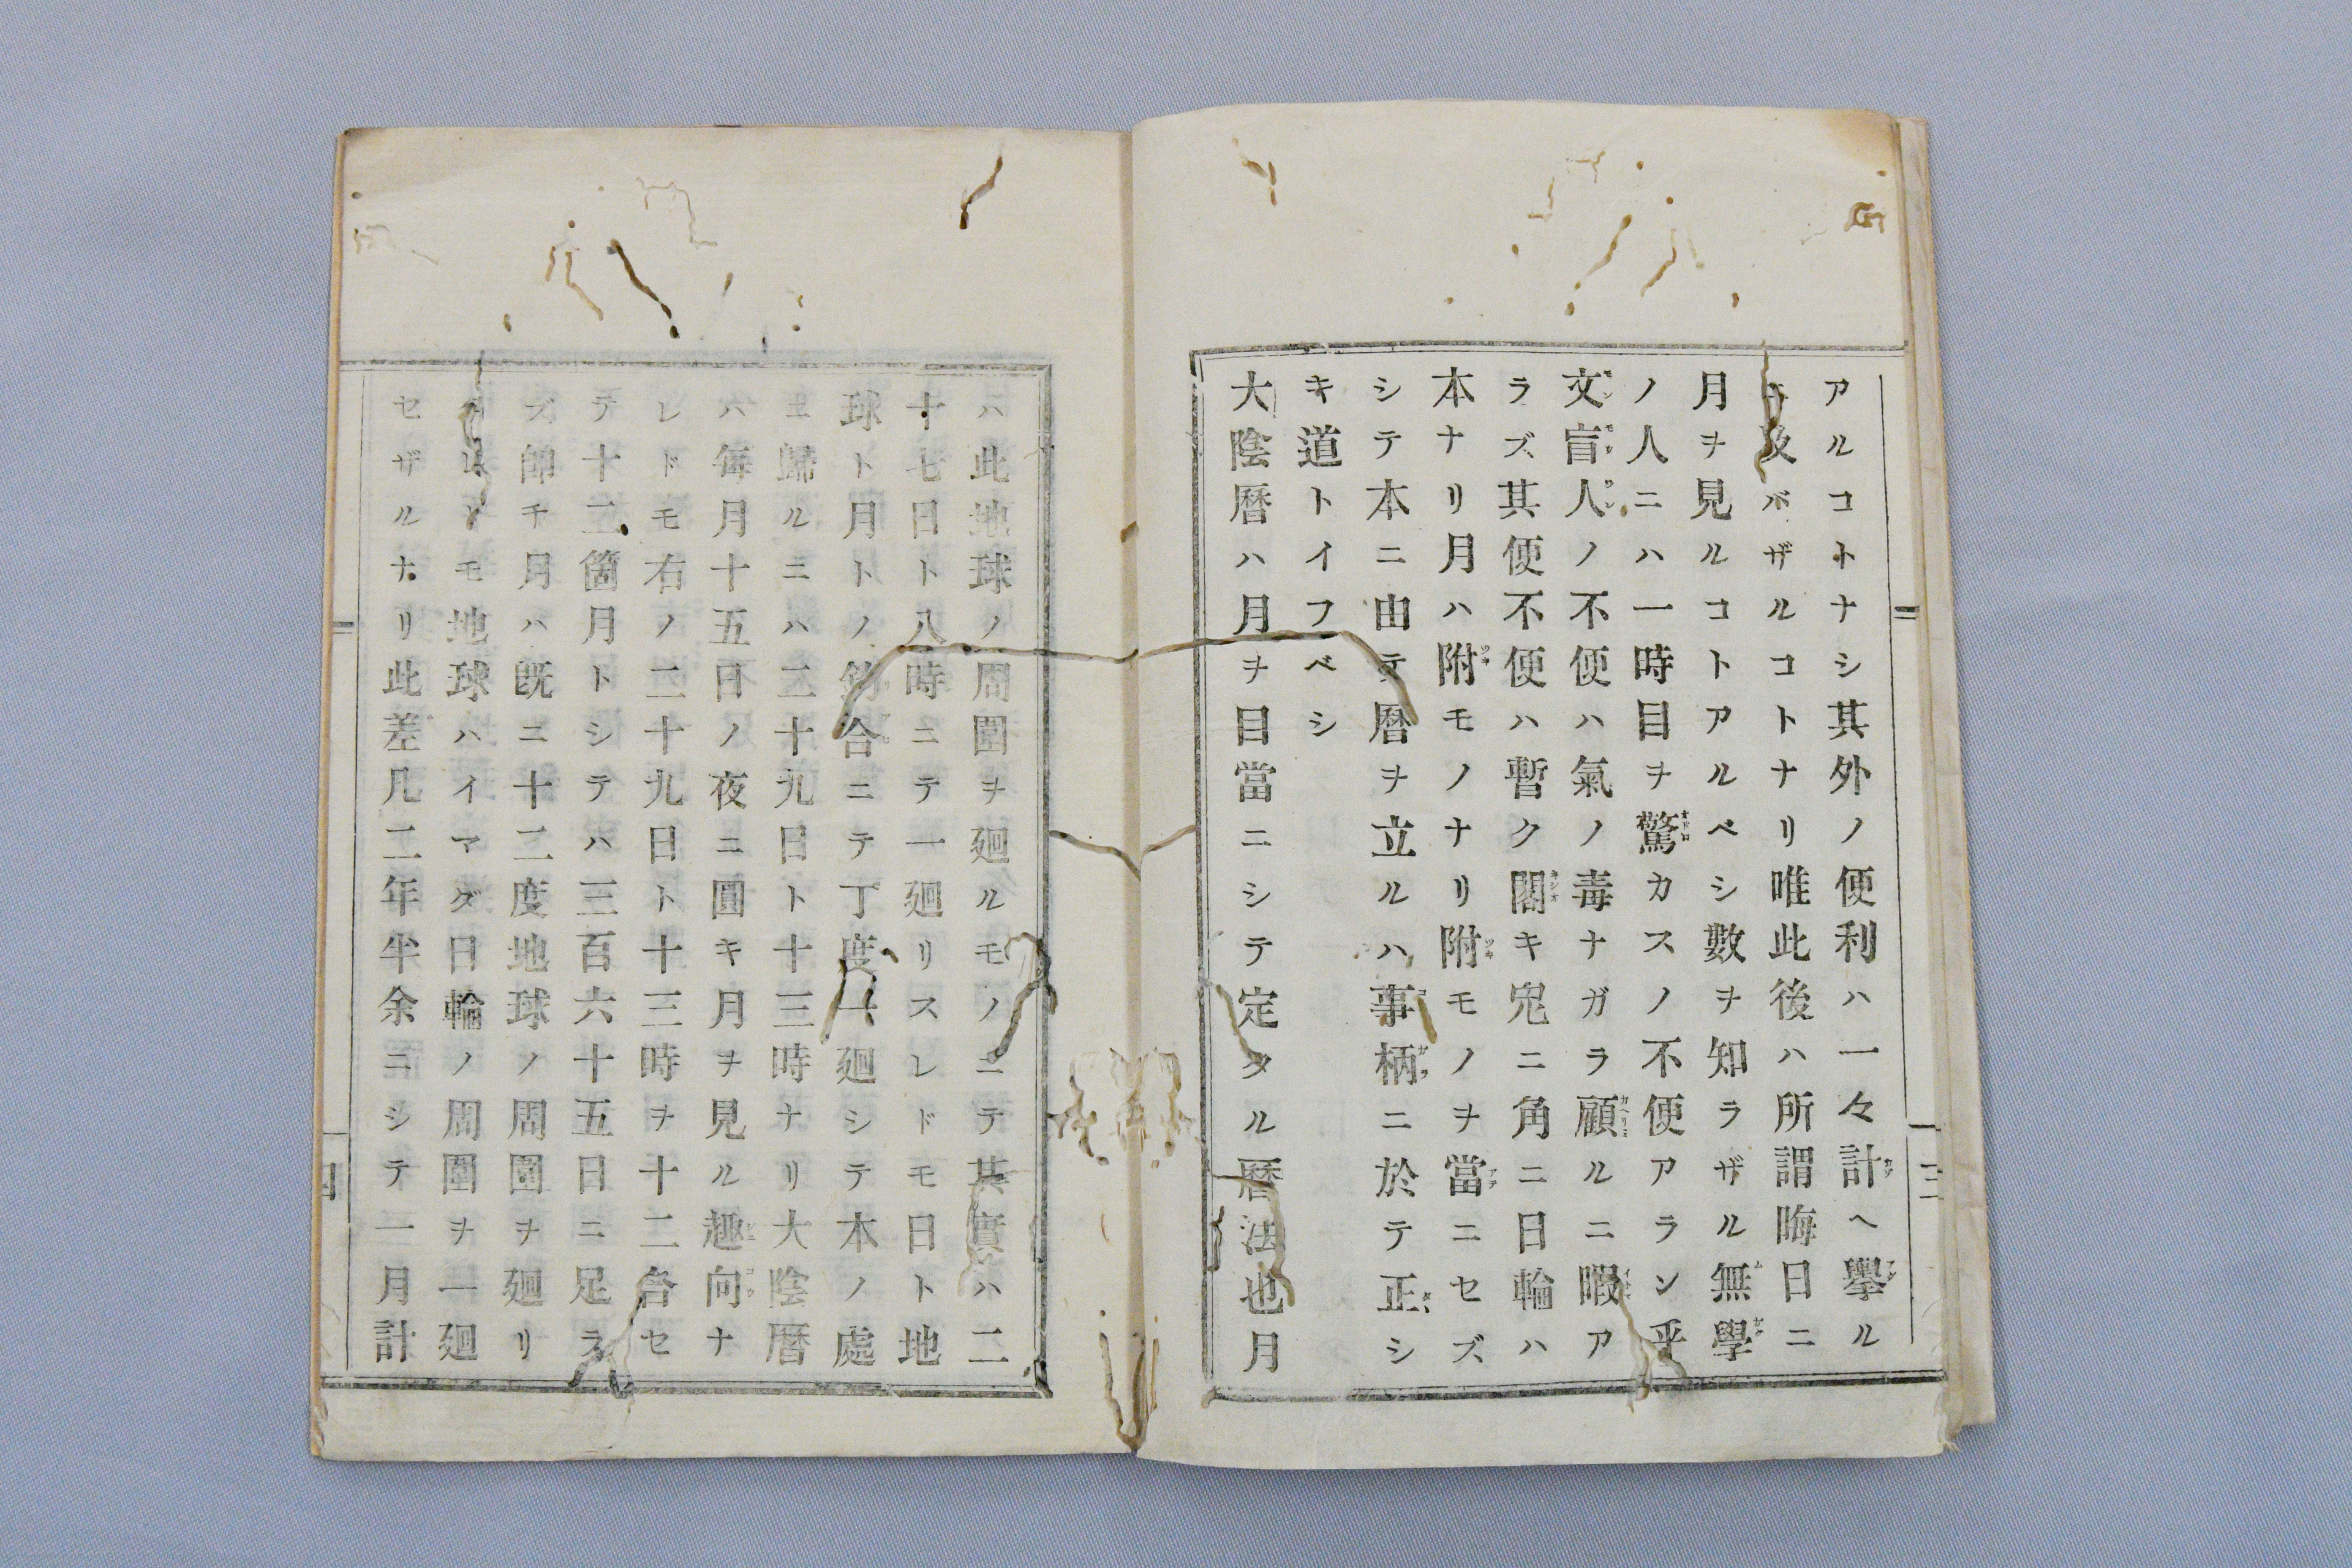 アルコトナシ其外ノ便利ハ一々計ヘ擧ル
ニ及バザルコトナリ唯此後ハ所謂晦日ニ
月ヲ見ルコトアルベシ數ヲ知ラザル無學
ノ人ニハ一時目ヲ驚カスノ不便アラン乎
文盲人ノ不便ハ氣ノ毒ナガラ顧ルニ暇ア
ラズ其便不便ハ暫ク閣キ兎ニ角ニ日輪ハ
本ナリ月ハ附モノナリ附モノヲ當ニセズ
シテ本ニ由テ暦ヲ立ルハ事柄ニ於テ正シ
キ道トイフベシ
大陰暦ハ月ヲ目當ニシテ定タル暦法也月
三
ハ此地球ノ周圍ヲ廻ルモノニテ其實ハ二
十七日ト八時ニテ一廻リスレドモ日ト地
球ト月トノ釣合ニテ丁度一廻シテ本ノ處
ニ歸ルニハ二十九日ト十三時ナリ大陰暦
ハ毎月十五日ノ夜ニ圓キ月ヲ見ル趣向ナ
レドモ右ノ二十九日ト十三時ヲ十二合セ
テ十二箇月トシテハ三百六十五日ニ足ラ
ズ即チ月ハ既ニ十二度地球ノ周圍ヲ廻リ
タレドモ地球ハイマダ日輪ノ周圍ヲ一廻
セザルナリ此差凡二年半余ニシテ一月計
四